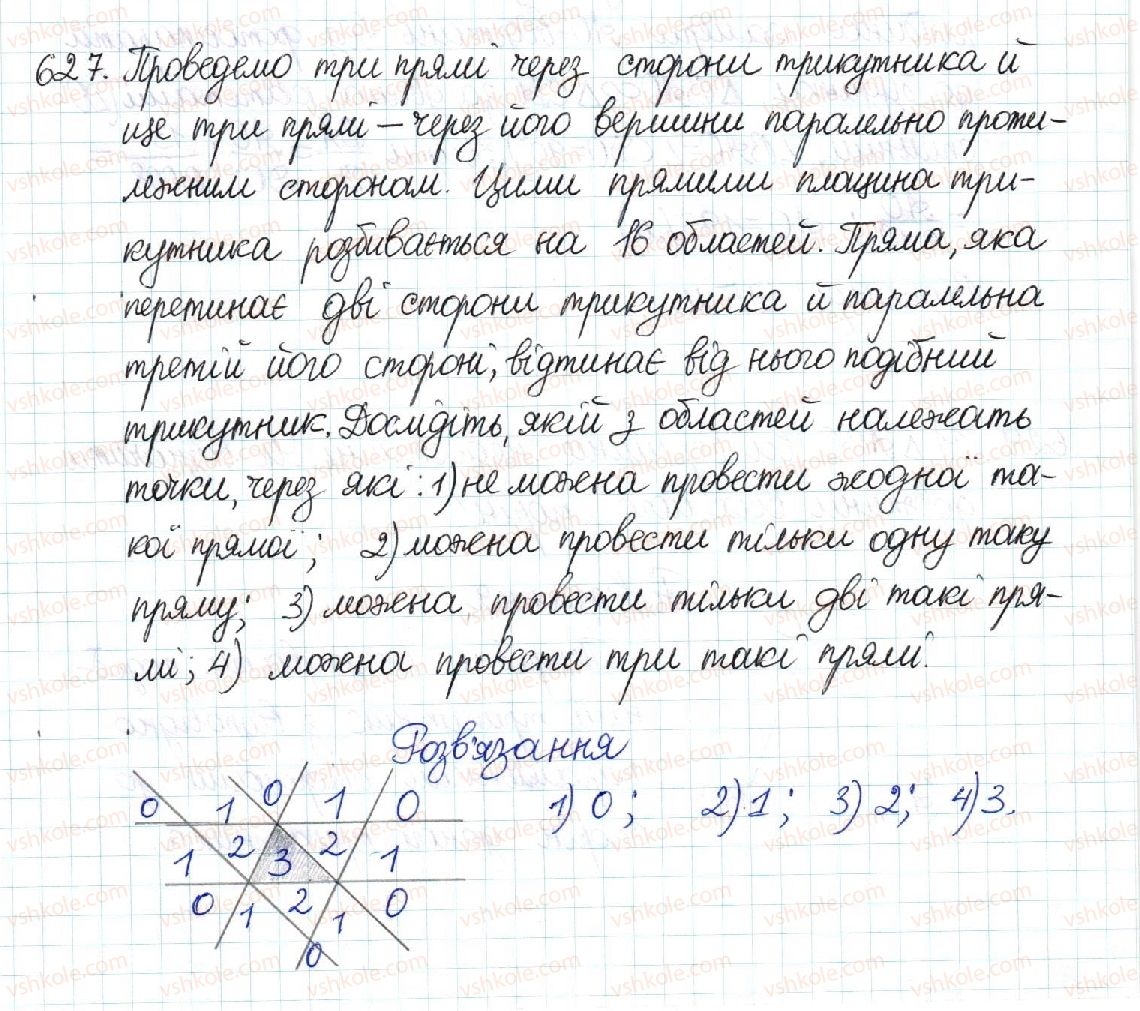 627. Проведемо три прямі через сторони трикутника й
ще три прямі – через його вершини паралельно проти-
лежним сторонам. Цими прямими площина три-
кутника розбивається на 16 областей. Пряма, яка
перетинає дві сторони трикутника й паралельна
третій його стороні, відтинає від нього подібний
трикутник. Дослідіть, якій з областей належать
точки, через які: 1) не можна провести жодної та-
кої прямої; 2) можна провести тільки одну таку
пряму; 3) можна провести тільки дві такі пря-
мі; 4) можна провести три такі прямі.
Розв'язання
0 1 0 1 0
1) 0; 2) 1; 3) 2; 4) 3.
1 2 3 2 1
0 1 2 1 0
0